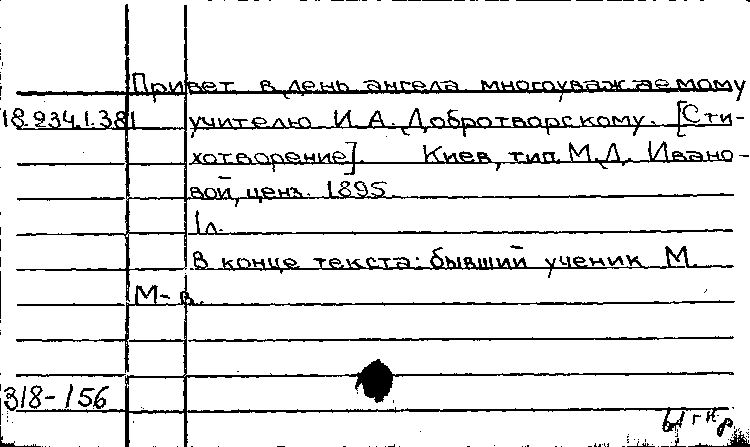 Привет в день ангела многоуважаемому
18.234.1.381 учителю И.А. Добротварскому. [Сти-
хотворение]. Киев, тип. М.Д. Ивано-
вой, ценз. 1895.
1л.
В конце текста: бывший ученик М.
М-в.
318-156